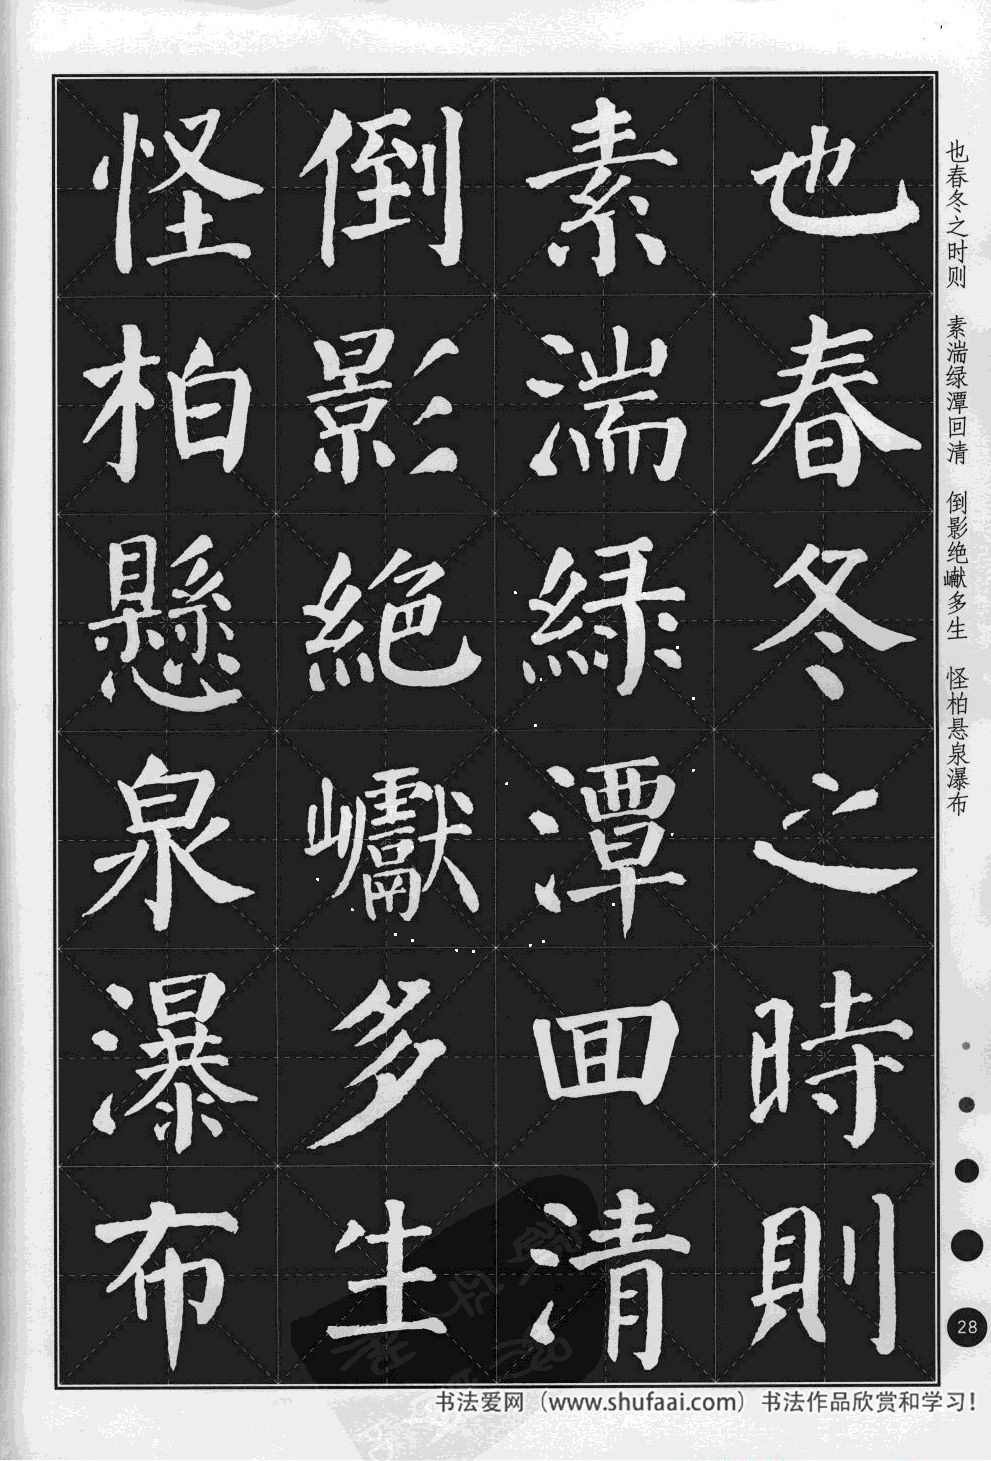 也春冬之時則
素湍綠潭回清
倒影絕巘多生
怪柏懸泉瀑布
也春冬之时则 素湍绿潭回清 倒影绝巘多生 怪柏悬泉瀑布
28
书法爱网（www.shufaai.com）书法作品欣赏和学习！